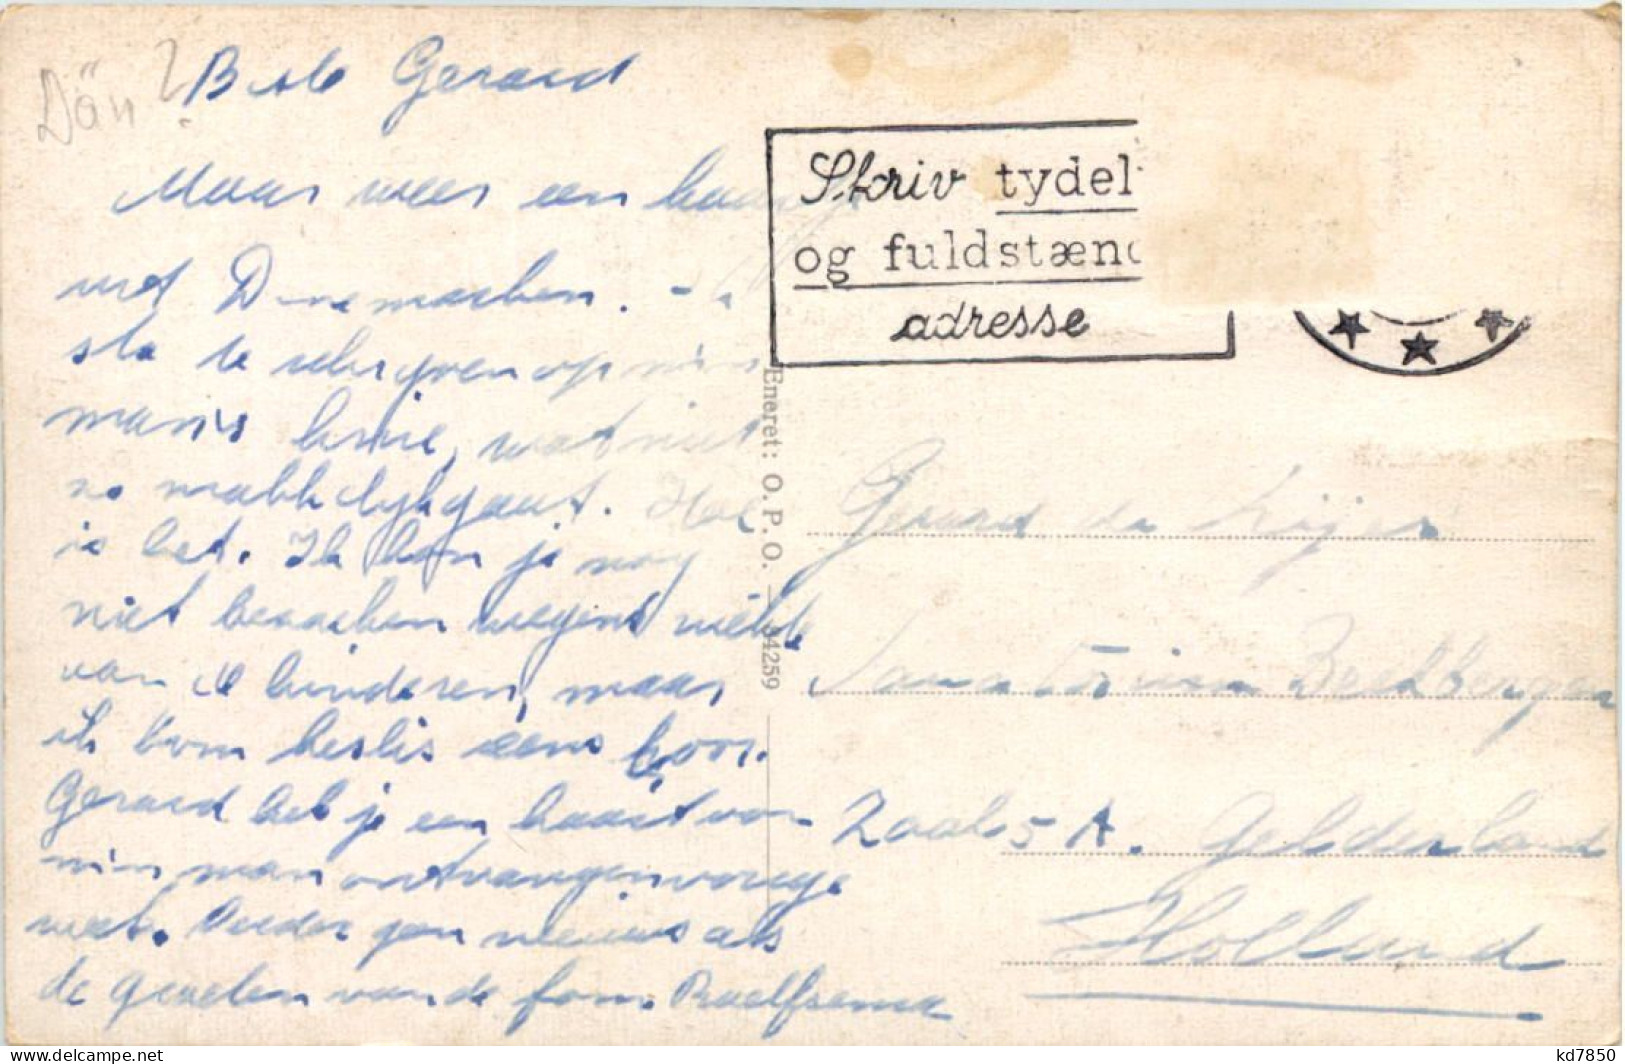 Dän ?
Beste Gerard
Maar weer een kaartje
uit Denemarken.
sta te schrijven op mijn
man's knie, wat niet
zo makkelijk gaat. Hoe
is het. Ik kan je nog
niet bezoeken wegens ziekte
van de kinderen, maar
ik kom beslis eens hoor.
Gerard heb je een kaart van
mijn man ontvangen vorige
week. Verder geen nieuws als
de groeten van de fam. Roelfsema
Skriv tydel
og fuldstænd
adresse
Eneret: O. P. O. 34259
Gerard de
Sanatorium Beekbergen
Zaal 5 A. Gelderland
Holland
kd7850